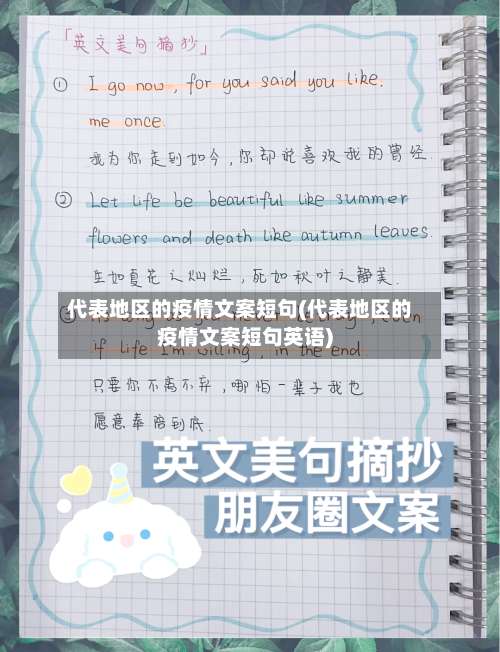 「英文美句摘抄」
① I go now, for you said you like.
me once.
我为你走到如今，你却说喜欢我的曾经
② Let life be beautiful like summer
flowers and death like autumn leaves.
生如夏花之灿烂，死如秋叶之静美.
代表地区的疫情文案短句(代表地区的
疫情文案短句英语)
if life I'm willing, in the end
只要你不离不弃，哪怕一辈子我也
愿意奉陪到底.
英文美句摘抄
朋友圈文案